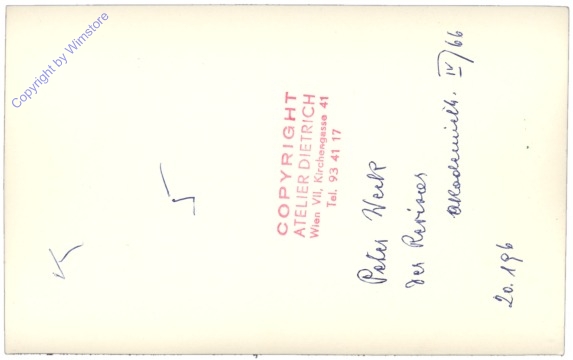 Copyright by Wimstore
COPYRIGHT
ATELIER DIETRICH
Wien VII, Kirchengasse 41
Tel. 93 41 17
Peter Weck
Der Revisor
Akademieth. IV/66
20.196
5